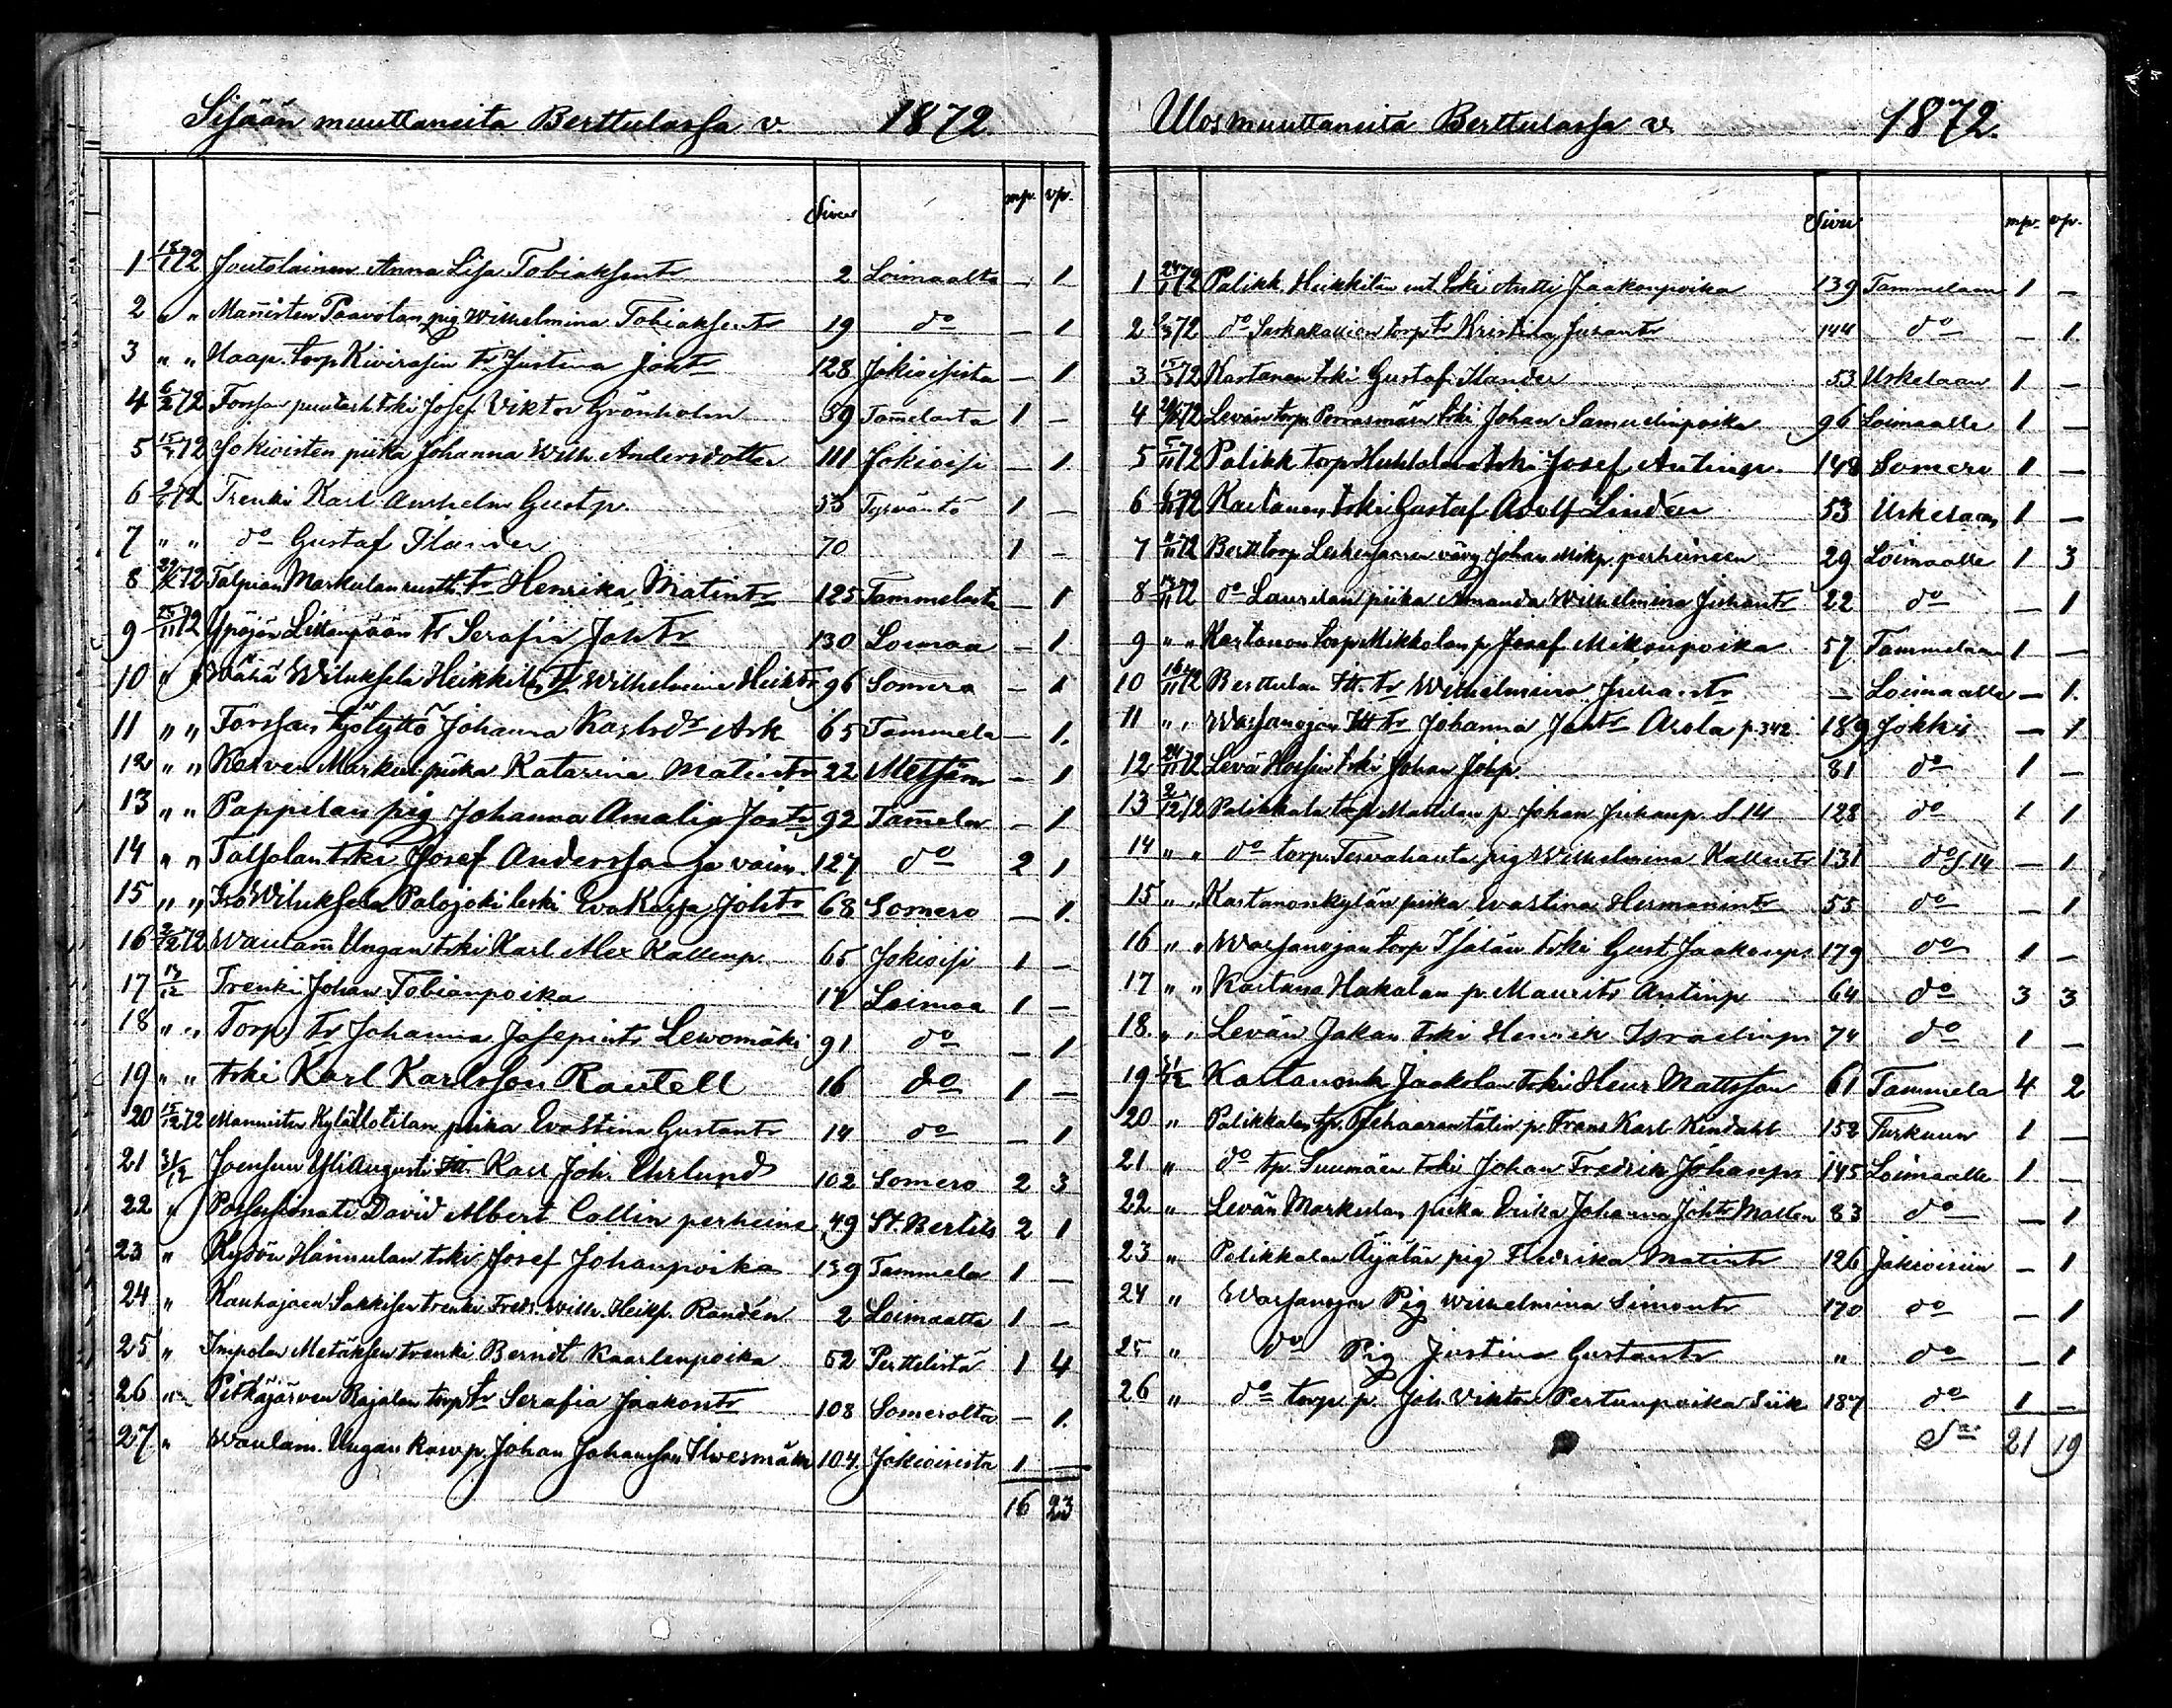 Sisään muuttaneita Berttulassa v. 1872.
Sivu mp. vp.
1 18/1 72 Joutolainen Anna Lisa Tobiaksentr 2 Loimaalta — 1
2 " " Mañisten Paavolan pig Wilhelmina Tobiaksentr 19 do — 1
3 " " Haap. torp Kivirasin tr Justina Johtr 128 Jokioisista — 1
4 6/2 72 Forssan trki Josef Viktor Grönholm 39 Tam̃elasta 1 —
5 15/ 72 Jokioisten piika Johanna Wilh. Andersdotter 111 Jokioisi — 1.
6 72 Trenki Karl Anshelm Gustp. 53 Tyrväntö 1 —
7 " " do Gustaf Ilander 70 1 —
8 29/ 72 Talpian Markulan rustt. tr Henrika Matintr 125 Tammelasta — 1
9 25/11 72 Ypäjän Littanpään tr Serafia Johtr 130 Loimaa — 1.
10 " " Wähä Wiluksela Heikkilä tr Wilhelmina Heiktr 96 Somero — 1
11 " " Forssan työtyttö Johanna Karlsdr Ark 65 Tammela — 1.
12 " " Markun piika Katarina Matintr 22 Metsäm — 1
13 " " Pappilan pig Johanna Amalia Jostr 92 Tam̃ela — 1
14 " " Talsolan trki Josef Andersson ja vaim. 127 do 2 1
15 " " Iso Wiluksela Palojoki leski Eva Kaisa Johtr 68 Somero — 1.
16 2/12 72 Waulam̃ Ungan trki Karl Alex Kallenp. 65 Jokioisi 1 —
17 13/12 Trenki Johan Tobianpoika 17 Loimaa 1 —
18 " " Torp. tr Johanna Josepintr Lewomäki 91 do — 1
19 " " trki Karl Karlsson Rautell 16 do 1 —
20 15/12 72 Mannisten Kylä piika Evastina Gustantr 14 do — 1
21 31/12 Jaensuu Yli Augusti Itt. Karl Joh. Ehrlund 102 Somero 2 3
22 " Possessionati David Albert Collin perheine 49 St. Bertils 2 1
23 " Kydön Hannulan trki Josef Johanpoika 139 Tammela 1 —
24 " Kauhajaen Sakkisen trenki Fredr. Wilh. Heikp. Randén 2 Loimaalta 1 —
25 " Impolan Metäksen trenki Berndt Kaarlenpoika 52 Perttelistä 1 4
26 " Pitkäjärven Rajalan torp tr Serafia Jaakontr 108 Somerolta — 1.
27 " Waulam. Ungan kasvp. Johan Johansson Ilvesmäki 104. Jokioisista 1 —
16 23
Ulosmuuttaneita Berttulassa v. 1872.
Sivu mp. vp.
1 24/1 72 Palikk. Heikkilän ent. trki Antti Jaakonpoika 139 Tammelaan 1 —
2 /3 72 do torp tr Kristina Juhantr 144 do — 1.
3 15/3 72 Kartanon trki Gustaf Ilander 53 Uskelaan 1 —
4 72 Levän torp. Porrasmäen trki Johan Samuelinpoika 96 Loimaalle 1 —
5 5/11 72 Palikk torp trki Josef Antinp. 148 Somero 1 —
6 6/11 72 Kartanon trki Gustaf Adolf Lindén 53 Uskelaan 1 —
7 11/11 72 Bertt torp. vävy Johan Mikp. perheineen 29 Loimaalle 1 3
8 13/11 72 do Laurilan piika Amanda Wilhelmina Juhantr 22 do — 1
9 " " Kartanon torp Mikkolan p. Josef Mikonpoika 57 Tammelaan 1 —
10 16/11 72 Berttulan Itt. tr Wilhelmina Juhantr — Loimaalle — 1.
11 " " Warsanojan Itt tr Johanna Johtr Arola p. 342 189 Jokkis — 1
12 24/11 72 Levä Hossin trki Johan Johp. 81 do 1 —
13 2/12 72 Palikkala torp Mattilan p. Johan Juhanp. S. 14 128 do 1 1
14 " " do torp. Tervahauta pig Wilhelmina Kallentr 131 do S. 14 — 1
15 " " Kartanonkylän piika Evastina Hermanintr 55 do — 1
16 " " Warsanojan torp Isotalo trki Gust Jaakonp. 179 do 1 —
17 " " Kartano Hakalan p. Maurits Antinp 64 do 3 3
18. " " Levän Jakan trki Henrik Israelinp 74 do 1 —
19 31/12 Kartanonk Jaakolan trki Henr Mattsson 61 Tammela 4 2
20 " Palikkalan tp. p. Frans Karl Kindahl 152 Turkuun 1 —
21 " do tp. Suumäen trki Johan Fredrik Johanp. 145 Loimaalle 1 —
22 " Levän Markulan piika Erika Johanna Johtr Mallen 83 do — 1
23 " Palikkalan Äijälän pig Fredrika Matintr 126 Jokioisiin — 1
24 " Warsanojan Pig Wilhelmina Simontr 170 do — 1
25 " do Pig Justina Gustantr " do — 1
26 " do torp. p. Joh. Viktor Pertunpoika Siik 187 do 1 —
Sa 21 19